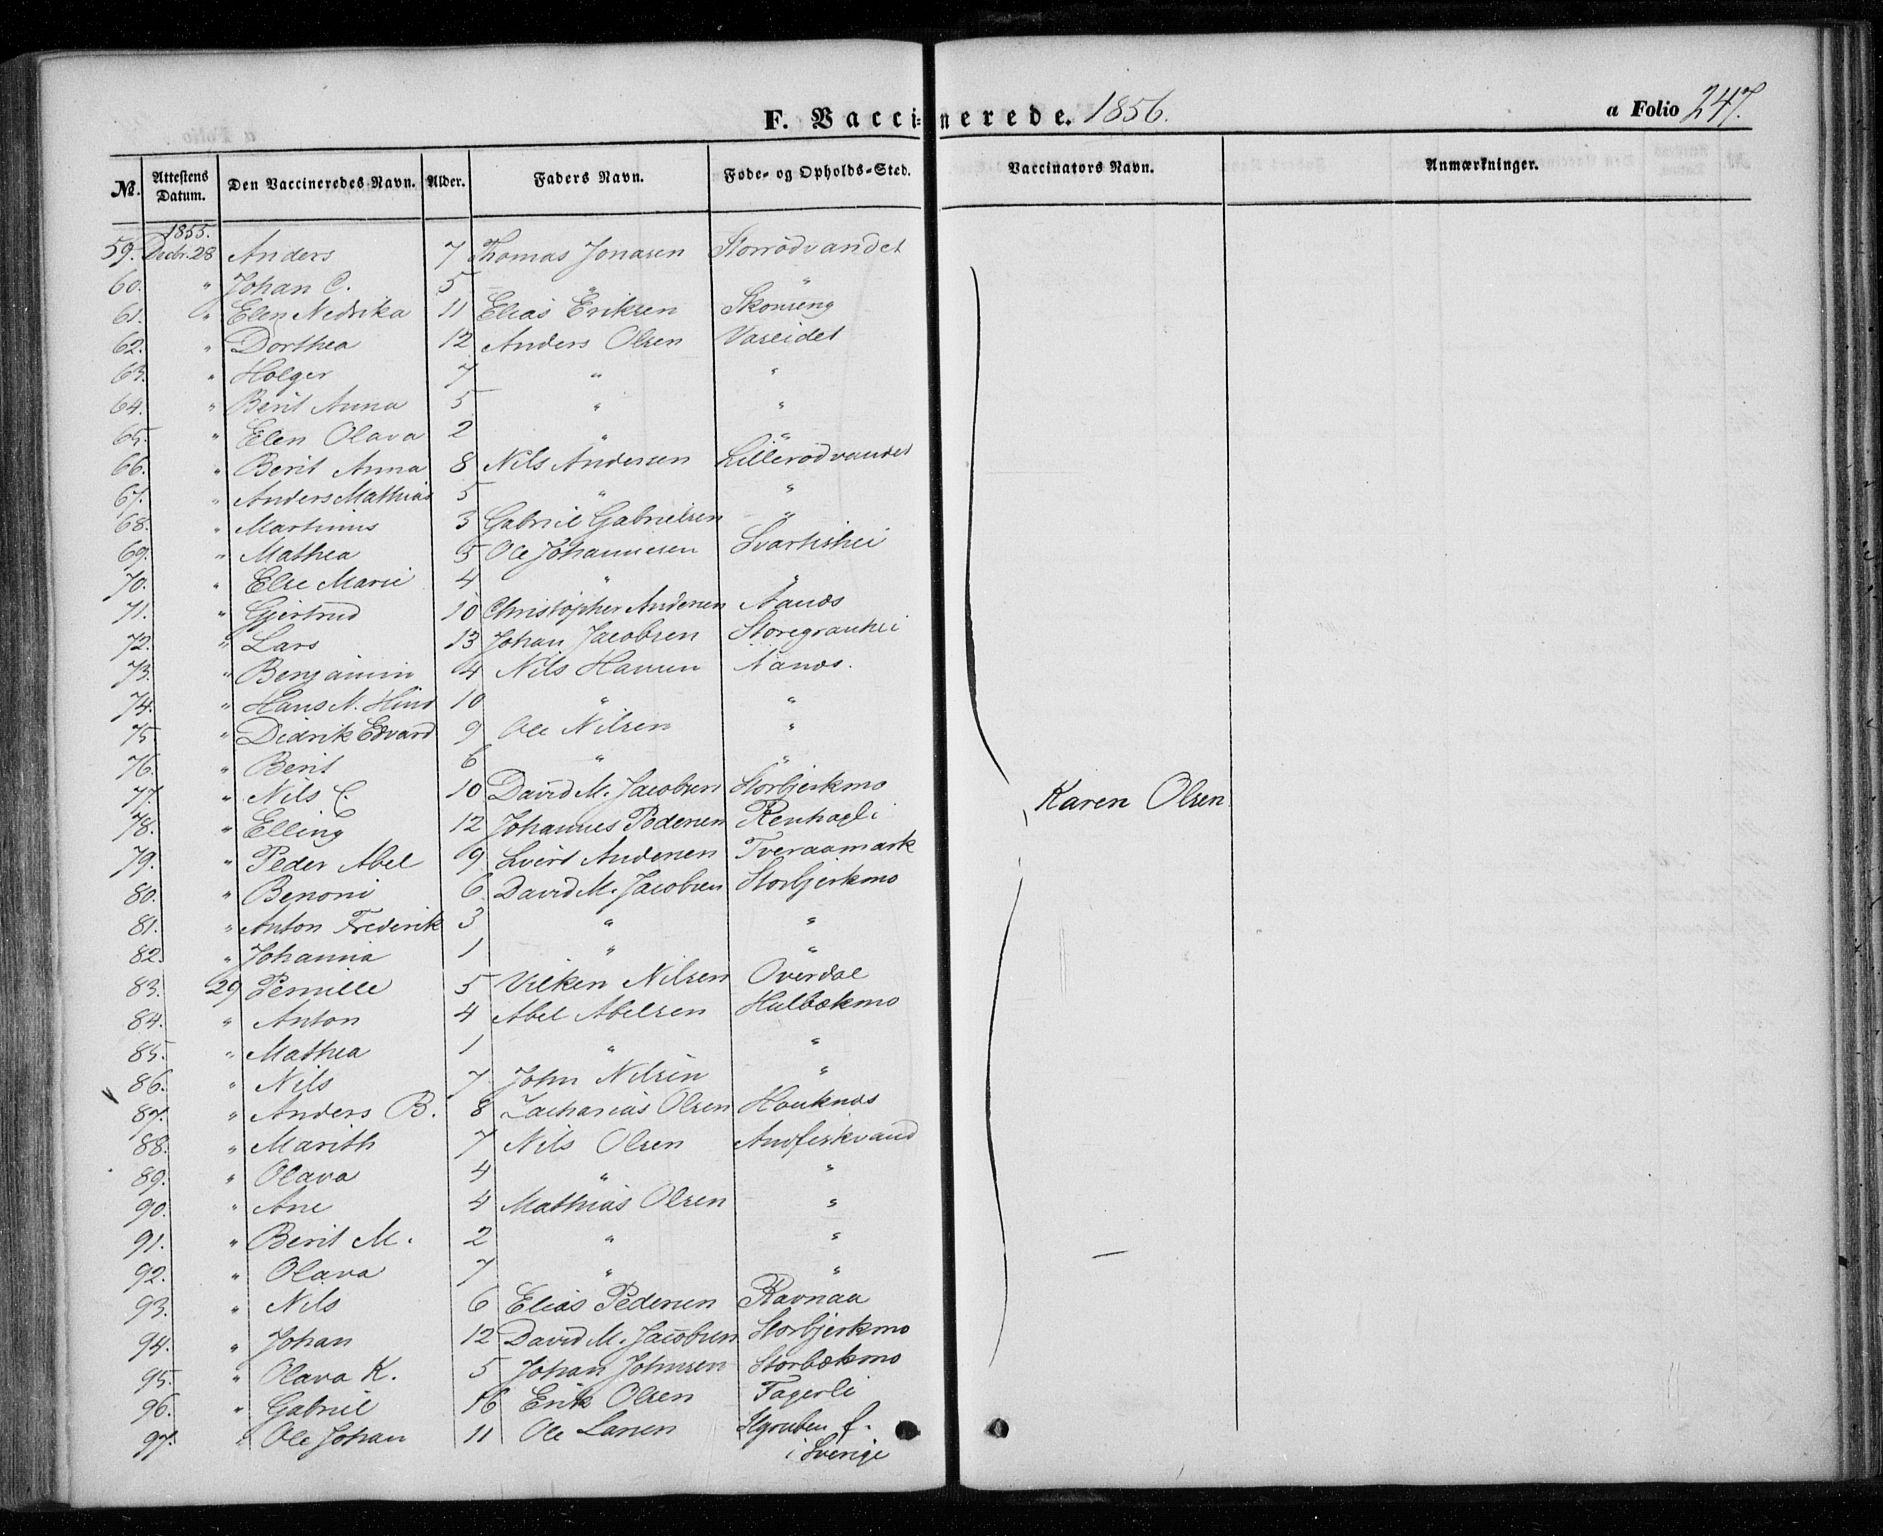 F. Vaccinerede. 1856. a Folio 247.
№. Attestens Datum. Den Vaccineredes Navn. Alder. Faders Navn. Føde- og Opholds-Sted. Vaccinators Navn. Anmærkninger.
1855.
59. Decbr. 28 Anders 7 Thomas Jonasen Storrødvandet
60. " Johan C. 5 " "
61. " Elen Nedrika 11 Elias Eriksen Skonseng
62. " Dorthea 12 Anders Olsen Vaseidet
63. " Holger 7 " "
64. " Berit Anna 5 " "
65. " Elen Olava 2 " "
66. " Berit Anna 8 Nils Andersen Lillerødvandet
67. " Anders Mathias 5 " "
68. " Martinus 3 Gabriel Gabrielsen "
69. " Mathea 5 Ole Johannesen Svartishei
70. " Else Marie 4 " "
71. " Gjertrud 10 Christopher Andersen Næs
72. " Lars 13 Johan Jacobsen Storegranhei
73. " Benjamin 4 Nils Hansen
74. " Hans N. Hind 10 " "
75. " Didrik Edvard 9 Ole Nilsen "
76. " Berit 6 " "
77. " Nils C. 10 David M. Jacobsen Storbjerkmo
78. " Elling 12 Johannes Pedersen Renhagli
79. " Peder Abel 9 Sivert Andersen Tveraamark
Karen Olsen
80. " Benoni 6. David M. Jacobsen Storbjerkmo
81. " Anton Frederik 3 " "
82. " Johanna 1 " "
83. 29 Pernille 5 Vilken Nilsen Overdal
84. " Anton 4 Abel Abelsen Hulbækmo
85. " Mathea 1 " "
86. " Nils 7 John Nilsen "
87. " Anders B. 8 Zacharias Olsen Hauknæs
88. " Marith 7 Nils Olsen Andfiskvand
89. " Olava 4 " "
90. " Ane 4 Mathias Olsen "
91. " Berit M. 2 " "
92. " Olava 7 " "
93. " Nils 6 Elias Pedersen Ravnaa
94. " Johan 12 David M. Jacobsen Storbjerkmo
95. " Olava K. 5 Johan Johnsen Storbækmo
96. " Gabriel 16 Erik Olsen Fagerli
97. " Ole Johan 11 Ole Larsen f.
i Sverige